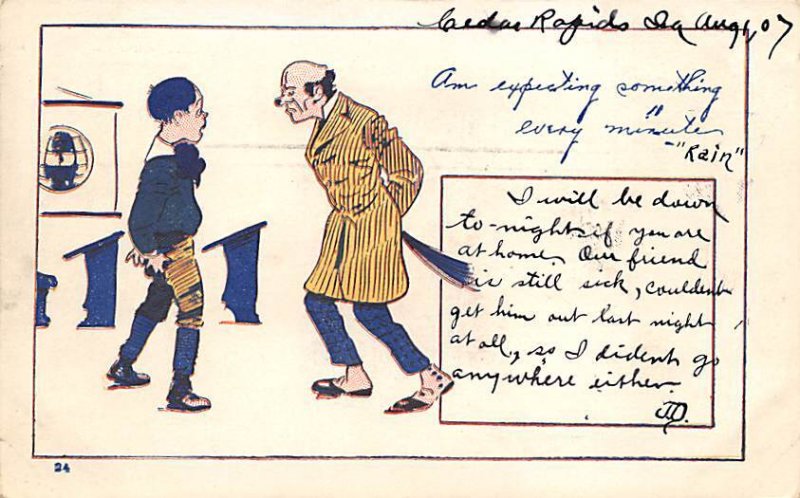 Cedar Rapids Ia Aug 1, 07
Am expecting something
every minute
- "Rain"
I will be down
to-night if you are
at home. Our friend
is still sick, couldent
get him out last night
at all, so I dident go
anywhere either.
24